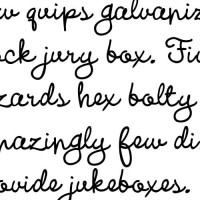 w quips galvaniz
ock jury box. Fi
zards hex bolty
mazingly few di
ovide jukeboxes.